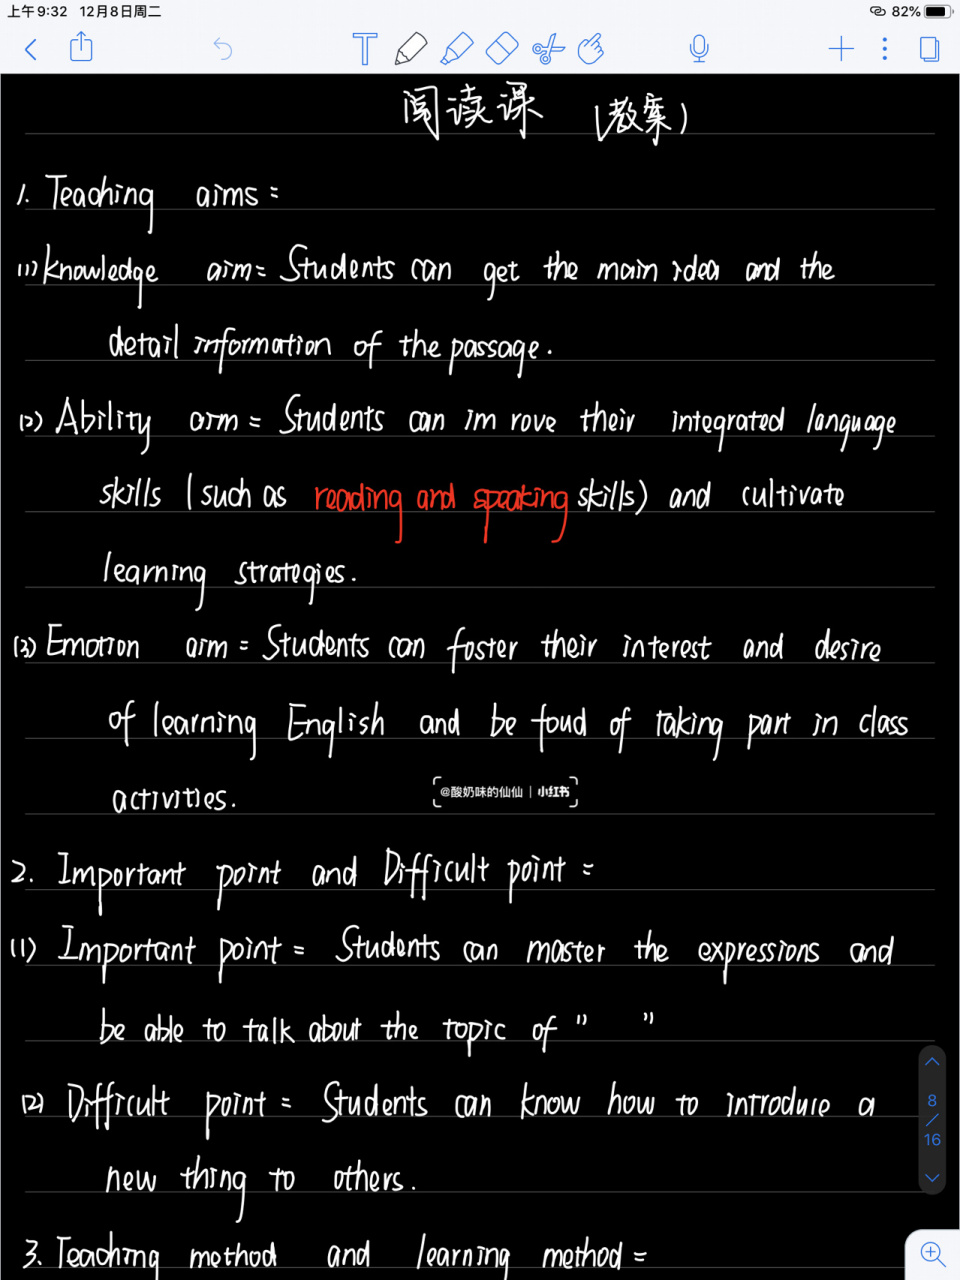 上午9:32 12月8日周二
82%
阅读课 (教案)
1. Teaching aims:
(1) Knowledge aim: Students can get the main idea and the
detail information of the passage.
(2) Ability aim: Students can im rove their integrated language
skills (such as reading and speaking skills) and cultivate
learning strategies.
(3) Emotion aim: Students can foster their interest and desire
of learning English and be foud of taking part in class
activities.
@酸奶味的仙仙 | 小红书
2. Important point and Difficult point:
(1) Important point: Students can master the expressions and
be able to talk about the topic of " "
(2) Difficult point: Students can know how to introduce a
new thing to others.
8
/
16
3. Teaching method and learning method: